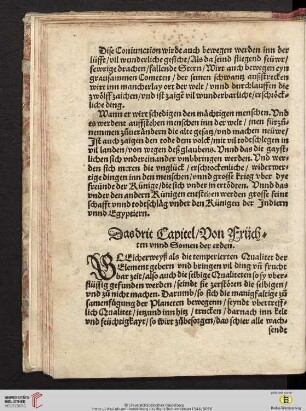 Dise Coniunction wirdt auch bewegen werden inn der
lüfft / vil wunderliche gesicht / Als da seind fliegend feüwr /
fewrige drachen / fallende Stern / Wirt auch bewegen eyn
grausammen Cometen / der seinen schwantz außstrecken
wirt inn mancherlay ort der welt / vnnd durchlauffen die
zwölff zaichen / vnd ist zaigt vil wunderbarlicht / erschröck-
liche ding.
Wann er wirt schedigen den mächtigen menschen. Vnd
es werdent aufftstehen menschen inn der welt / men fürzü-
nemmen züuerändern die alte gesatz / vnd machen neüwe /
Ist auch zaigen den tode dem volck / mit vil todschlegen in
vil landen / von wegen deß glaubens. Vnnd das die gayst-
lichen sich vndereinander vmbbringen werden. Vnd wer-
den sich meren die vnglück / erschrockenliche / widerwer-
tige dingen inn den menschen / vnnd grosse krieg vber dye
freünde der Künige / die sich vnder in ertödten. Vnnd das
vnder den andern Künigen entstehen werden grosse feint-
schafft vnnd todtschlag vnder den Künigen der Indiern
vnnd Egyptiern.
Das drit Capitel / Von Früch-
ten vnnd Somen der erden.
GLeicherweyß als die temperierten Qualitet der
Element gebern vnd bringen vil ding vñ frucht-
bar zeit / also auch die selbige Qualiteten so sy vber-
flüssig gefunden werden / seindt sie zerstören die selbigen /
vnd zü nicht machen. Darumb / so sich die manigfaltige zü
samenfügung der Planeten bewegenn / seyndt vbertreff-
lich Qualitet / ietzund inn hitz / trucken / darnach inn kelt
vnd feüchtigkayt / so wirt zübesorgen / das schier alle wach-
sendt